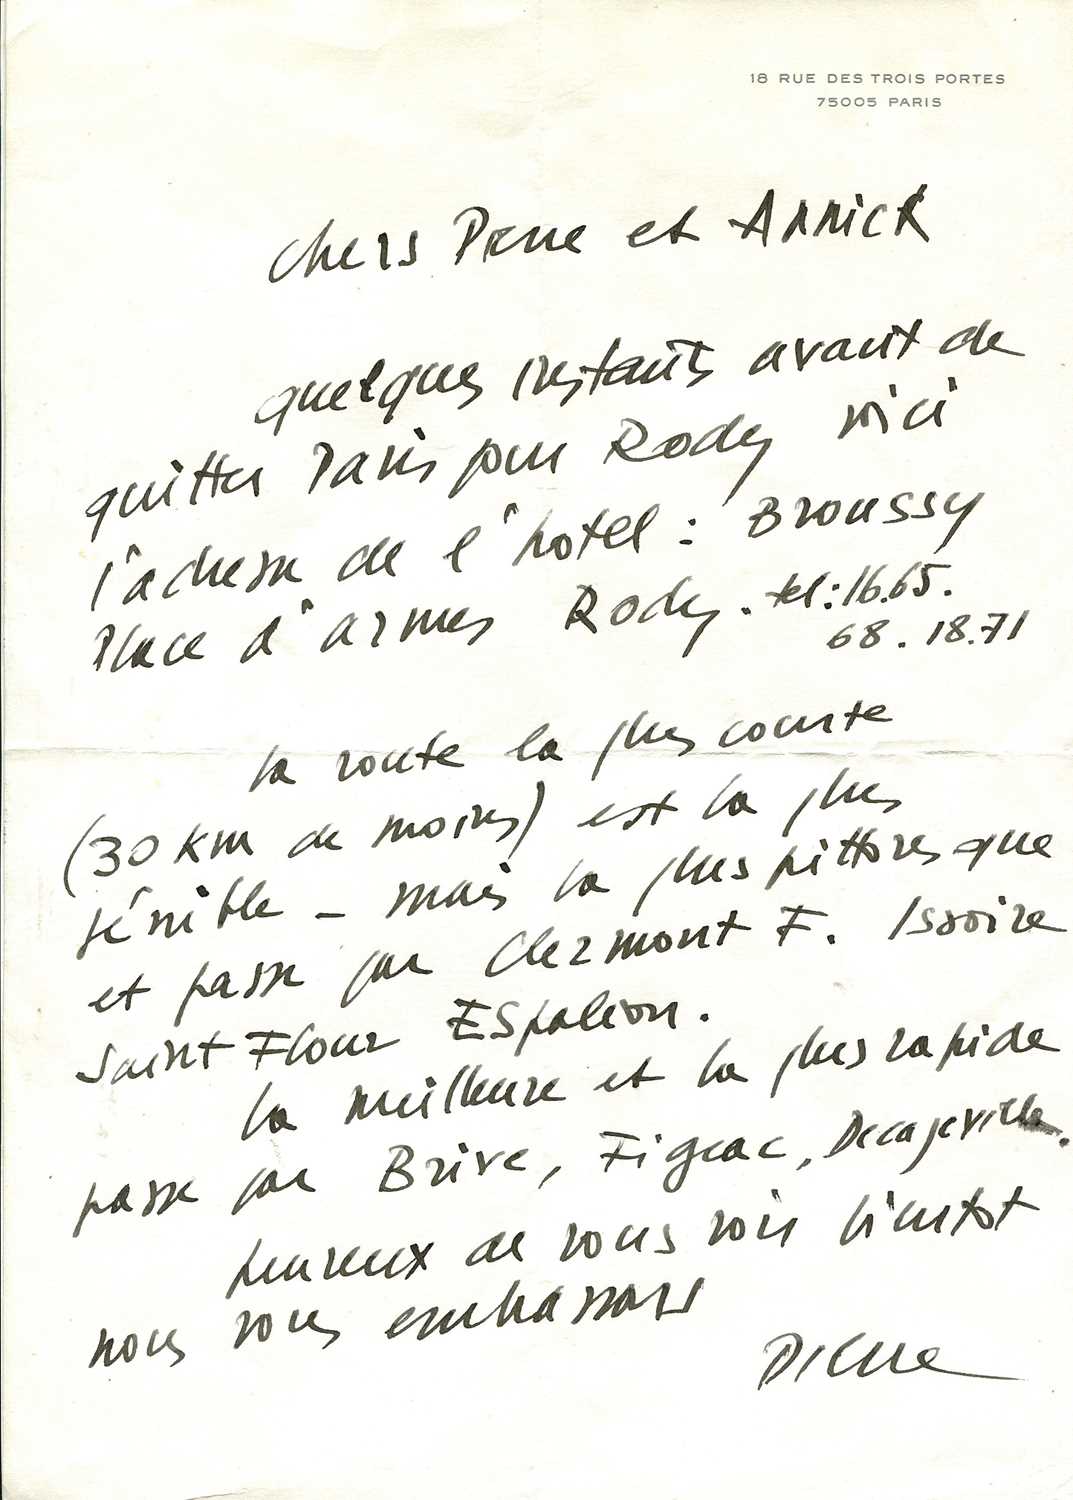 18 RUE DES TROIS PORTES
75005 PARIS
Chers Pierre et Annick
quelques instants avant de
quitter Paris pour Rodez voici
l'adresse de l'hotel : Broussy
Place d'armes Rodez. tel : 16.65.
68.18.71
la route la plus courte
(30 km de moins) est la plus
pénible - mais la plus pittoresque
et passe par Clermont F. Issoire
Saint Flour Espalion.
la meilleure et la plus rapide
passe par Brive, Figeac, Decazeville.
heureux de vous voir bientot
nous vous embrassons
Pierre